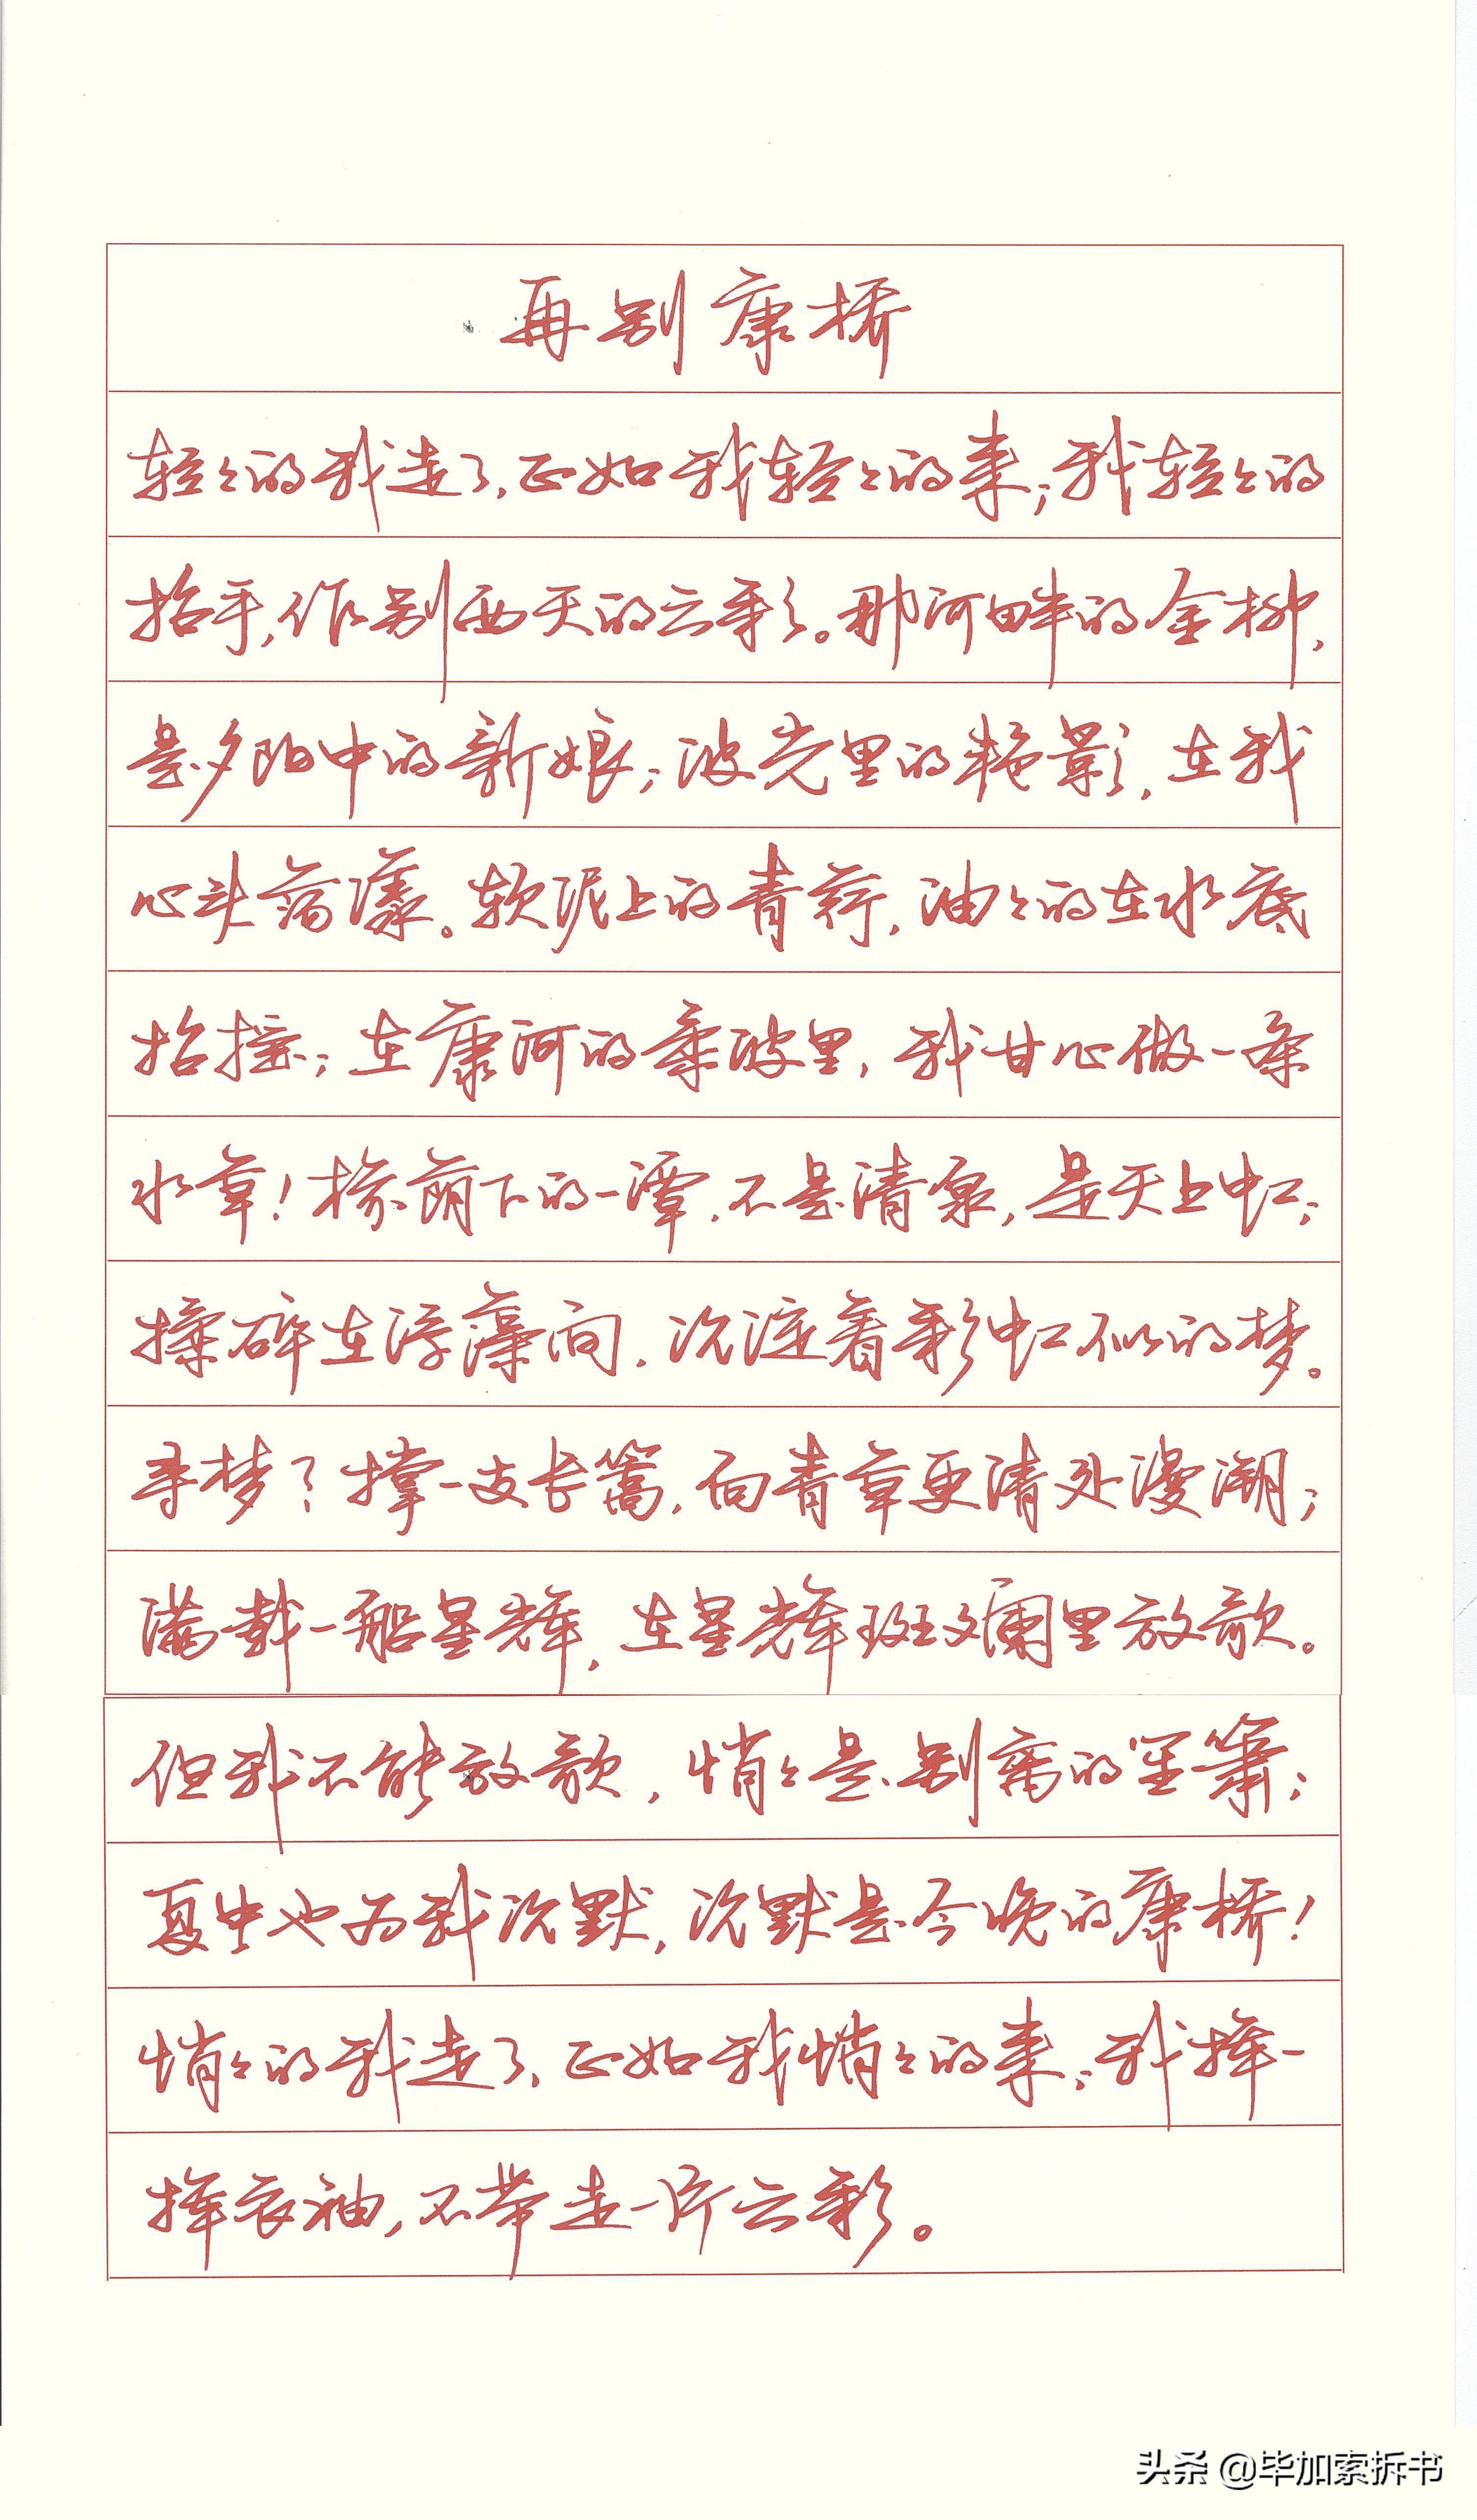 再别康桥
轻轻的我走了,正如我轻轻的来;我轻轻的
招手,作别西天的云彩。那河畔的金柳,
是夕阳中的新娘;波光里的艳影,在我
心头荡漾。软泥上的青荇,油油的在水底
招摇;在康河的柔波里,我甘心做一条
水草!榆荫下的一潭,不是清泉,是天上虹;
揉碎在浮藻间,沉淀着彩虹似的梦。
寻梦?撑一支长篙,向青草更清处漫溯;
满载一船星辉,在星辉斑斓里放歌。
但我不能放歌,悄悄是别离的笙箫;
夏虫也为我沉默,沉默是今晚的康桥!
悄悄的我走了,正如我悄悄的来;我挥一
挥衣袖,不带走一片云彩。
头条 @毕加索拆书